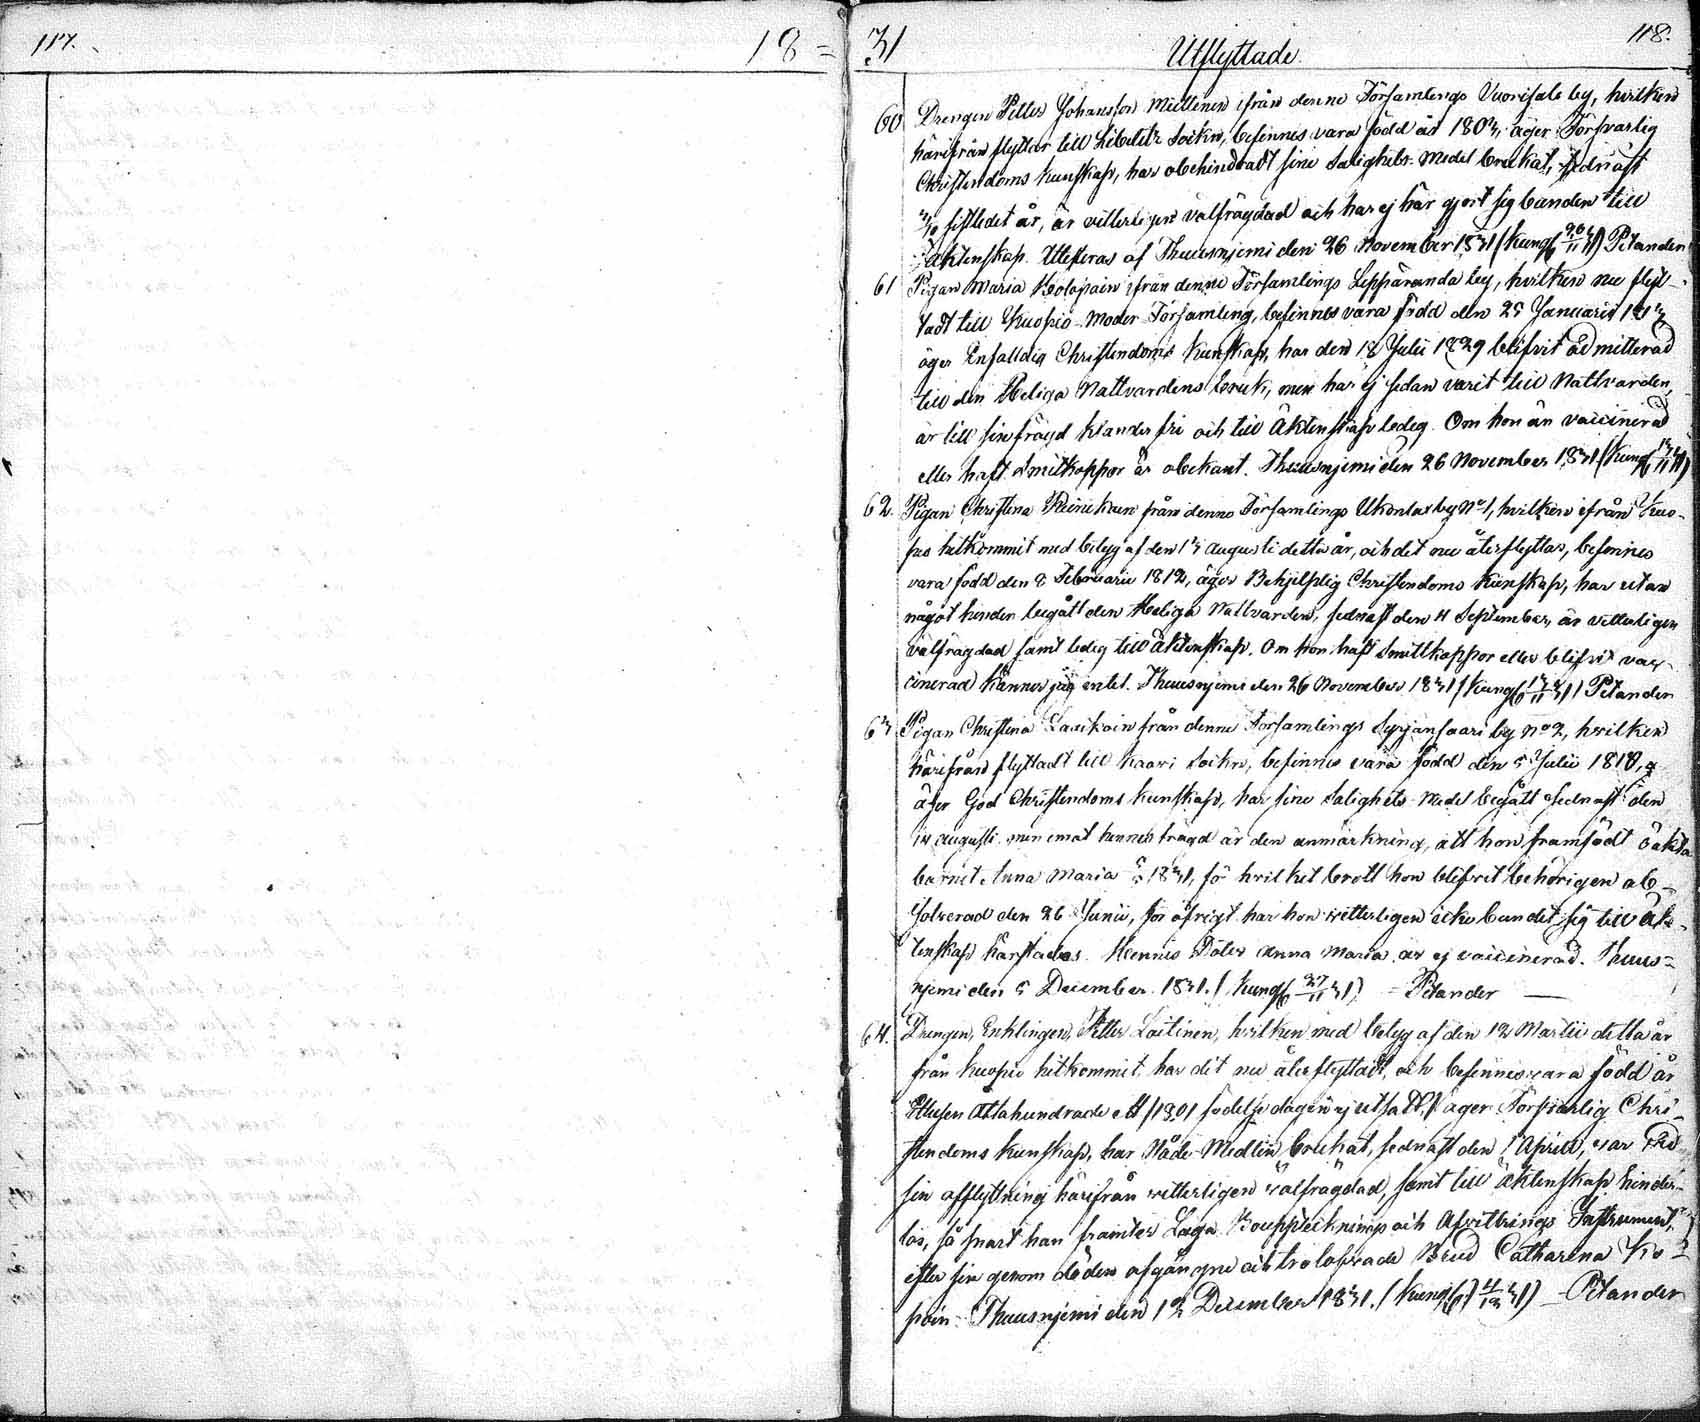 117.
18 = 31
118.
Utflyttade.
60 Drengen Petter Johansson Miettinen ifrån denne Församlings Vuorisalo by, hvilken
härifrån flyttar till Libelitz Sockn, befinnes vara född år 1803, äger Försvarlig
Christendoms kunskap, har obehindradt sine Salighets Medel brukat, sednast
sistledet år, är vitterligen välfrägdad och har ej här gjort sig bunden till
Äktenskap. Attesteras af Thuusnjemi den 26 November 1831 (Kungf 20/11 31) Petander
61 Pigan Maria Kolopain ifrån denne Församlings Lepparanda by, hvilken nu flyt-
tadt till Kuopio Moder Församling, befinnes vara född den 25 Januarii 1813
äger Enfalldig Christendoms Kunskap, har den 18 Julii 1829 blifvit admitterad
till den Heliga Nattvardens bruk, men har ej sedan varit till Nattvarden,
är till sin frägd klander fri och till Äktenskap ledig. Om hon än vaccinerad
eller haft Smitkoppor är obekant. Thuusnjemi den 26 November 1831 (Kungf 13/11 31)
62. Pigan Christina Reinikain från denne Församlings Ukonlax by No 1, hvilken ifrån Kuo-
pio hitkommit med betyg af den 13 Augusti detta år, och dit nu återflyttar, befinnes
vara född den 8 Februarii 1812, äger Behjelplig Christendoms Kunskap, har utan
något hinder begått den Heliga Nattvarden, sednast den 11 September, är vitterligen
välfrägdad samt ledig till Äktenskap. Om hon haft Smittkoppor eller blifvit vac-
cinerad känner jag intet. Thuusnjemi den 26 November 1831 (Kungf 13/11 31) Petander
63 Pigan Christina Lasikain från denne Församlings Syrjänsaari by No 2, hvilken
härifrån flyttadt till Kaavi Sockn, befinnes vara född den 5 Julii 1810,
äger God Christendoms kunskap, har sine Salighets Medel begått sednast den
14 Augusti, men emot hennes frägd är den anmärkning, att hon framfödt oäkta
barnet Anna Maria 1831, för hvilket brott hon blifvit behörigen ab-
solverad den 26 Junii, för öfrigt har hon vitterligen icke bundit sig till Äk-
tenskap härstades. Hennes Dåter Anna Maria är ej vaccinerad. Thuus-
njemi den 5 December 1831. (Kungf 27/11 31) - Petander
64. Drengen, Enklingen, Petter Laitinen, hvilken med betyg af den 12 Martii detta år
från Kuopio hitkommit har dit nu återflyttadt, och befinnes vara född år
Ettusen Åttahundrade ett /1801 födelse dagen ej utsatt/, äger Försvarlig Chri-
stendoms kunskap, har Nåde Medlen brukat, sednast den 1 April, var vid
sin afflyttning härifrån vitterligen välfrägdad, samt till äktenskap hinder-
lös, så snart han framter Laga Bouppteiknings och Afvittrings Instrument,
efter sin genom döden afgångne och trolofvade Brud Catharina Ko-
pain. Thuusnjemi den 12 December 1831. (Kungf 4/12 31) - Petander